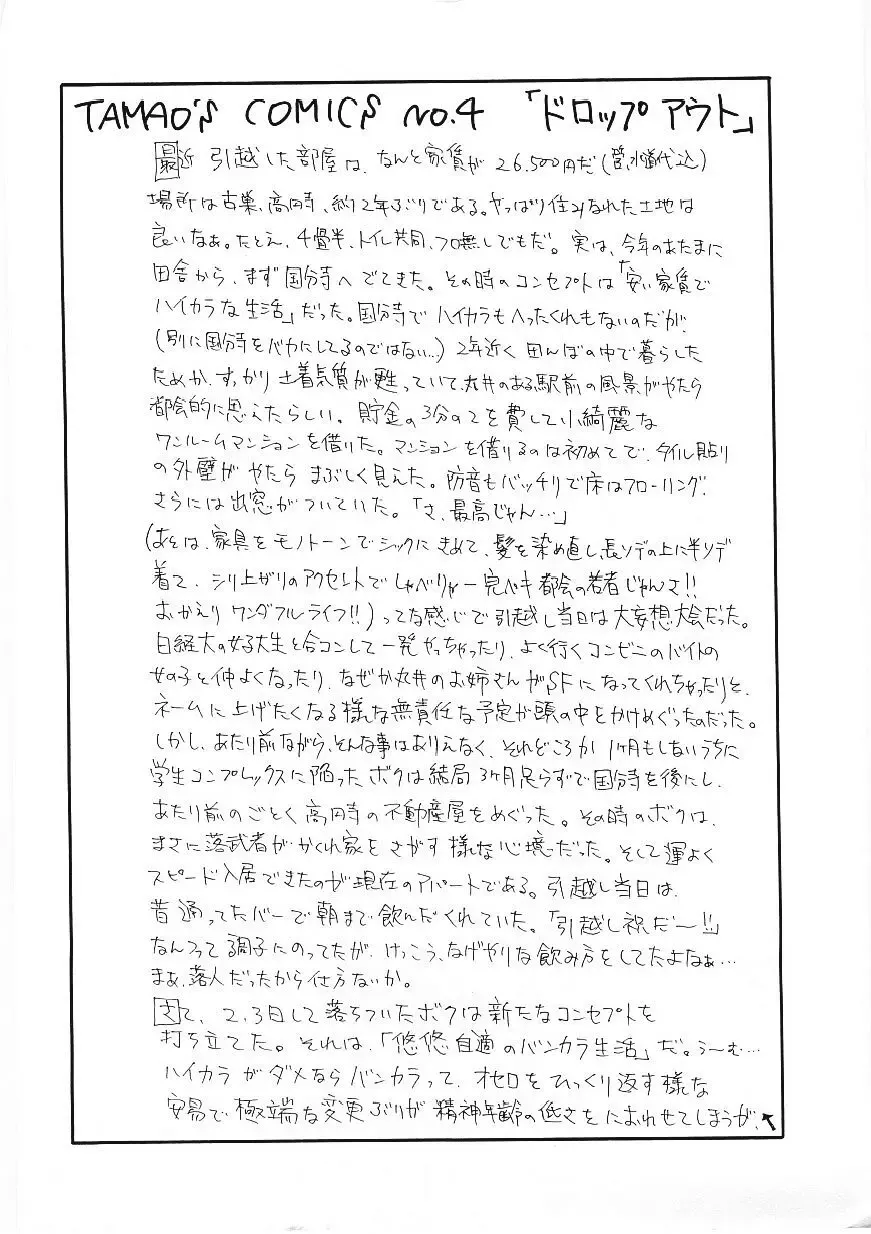 TAMAO'S COMICS NO.4 「ドロップアウト」
最近 引越した部屋は、なんと家賃が 26.500円だ(管、水道代込)
場所は古巣、高円寺、約2年ぶりである。やっぱり住みなれた土地は
良いなぁ。たとえ、4畳半、トイレ共同、フロ無しでもだ。 実は、今年のあたまに
田舎から、まず国分寺へでてきた。その時のコンセプトは「安い家賃で
ハイカラな生活」だった。国分寺でハイカラもへったくれもないのだが、
(別に国分寺をバカにしてるのではない…)2年近く田んぼの中で暮らした
ためか、すっかり土着気質が甦っていて、丸井のある駅前の風景がやたら
都会的に思えたらしい。 貯金の3分の2を費して小綺麗な
ワンルームマンションを借りた。マンションを借りるのは初めてで、タイル貼り
の外壁が やたら まぶしく見えた。防音もバッチリで床はフローリング、
さらには出窓がついていた。「さ、最高じゃん…」
(あとは、家具をモノトーンでシックにきめて、髪を染め直し、長ソデの上に半ソデ
着て、シリ上がりのアクセントでしゃべりゃー完ペキ都会の若者じゃんさ!!
おかえり ワンダフルライフ!!)ってな感じで引越し当日は大妄想大会だった。
日経大の女子大生と合コンして一発やっちゃったり、よく行くコンビニのバイトの
女の子と仲よくなったり、なぜか丸井のお姉さんがSFになってくれちゃったりと、
ネームに上げたくなる様な無責任な予定が頭の中をかけめぐったのだった。
しかし、あたり前ながら、そんな事はありえなく、それどころか 1ヶ月もしないうちに
学生コンプレックスに陥ったボクは結局3ヶ月足らずで国分寺を後にし、
あたり前のごとく高円寺の不動産屋をめぐった。その時のボクは、
まさに落武者がかくれ家をさがす様な心境だった。そして運よく
スピード入居できたのが現在のアパートである。引越し当日は、
昔通ってたバーで朝まで飲んだくれていた。「引越し祝だ〜!!」
なんつって調子にのってたが、けっこう、なげやりな飲み方をしてたよなぁ…
まぁ、落人だったから仕方ないか。
さて、2、3日して落ちついたボクは新たなコンセプトを
打ち立てた。それは、「悠悠自適のバンカラ生活」だ。う〜む…
ハイカラがダメならバンカラって、オセロをひっくり返す様な
安易で極端な変更ぶりが精神年齢の低さをにおわせてしまうが、